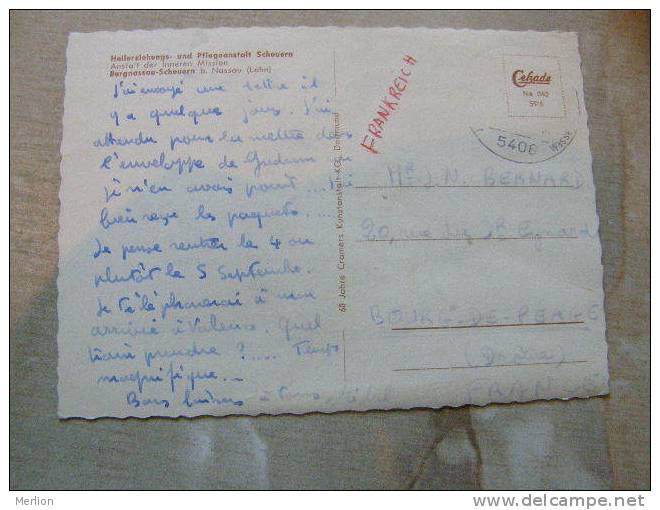 Heilerziehungs- und Pflegeanstalt Scheuern
Anstalt der Inneren Mission
Bergnassau-Scheuern b. Nassau (Lahn)
J'ai envoyé une lettre il
y a quelque jours. J'ai
attendu pour la mettre dans
l'enveloppe de
je n'en avais point
bien reçu les paquets....
Je pense rentrer le 4 ou
plutôt le 5 Septembre.
Je téléphonerai à mon
arrivée à Valence. Quel
train prendre ?.... Temps
magnifique.
Bons baisers à tous
60 Jahre Cramers Kunstanstalt KG, Dortmund
FRANKREICH
Cekade
Na 040
5408
J.N. BERNARD
20, rue
BOURG-DE-PEAGE
(Drôme)
FRANCE
Merlion
delcampe.net